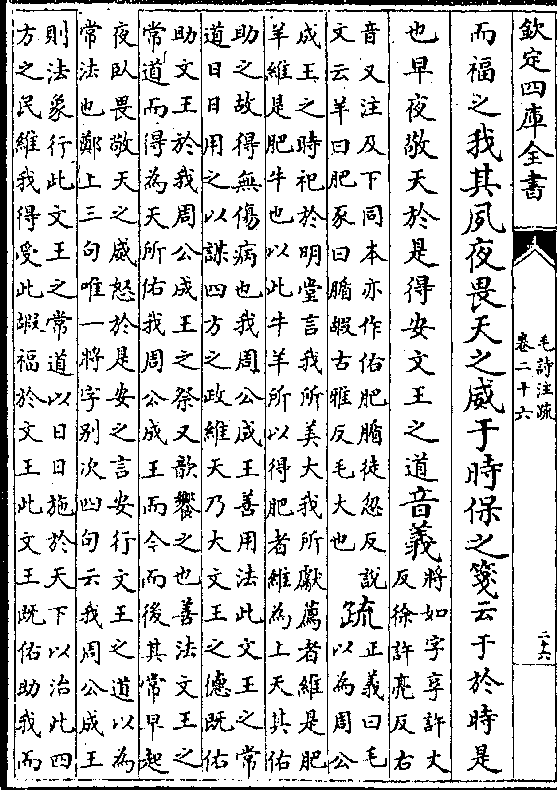 欽定四庫全書
毛詩注疏
卷二十六
二十六
而福之我其夙夜畏天之威于時保之箋云于於時是
也早夜敬天於是得安文王之道音義
將如字享許丈
反徐許亮反右
音又注及下同本亦作佑肥腯徒忽反說
文云羊曰肥豕曰腯嘏古雅反毛大也
疏
正義曰毛
以為周公
成王之時祀於明堂言我所美大我所獻薦者維是肥
羊維是肥牛也以此牛羊所以得肥者維為上天其佑
助之故得無傷病也我周公成王善用法此文王之常
道日日用之以謀四方之政維天乃大文王之德既佑
助文王於我周公成王之祭又歆饗之也善法文王之
常道而得為天所佑我周公成王而今而後其常早起
夜卧畏敬天之威怒於是安之言安行文王之道以為
常法也鄭上三句唯一將字别次四句云我周公成王
則法象行此文王之常道以日日施於天下以治此四
方之民維我得受此嘏福於文王此文王既佑助我而